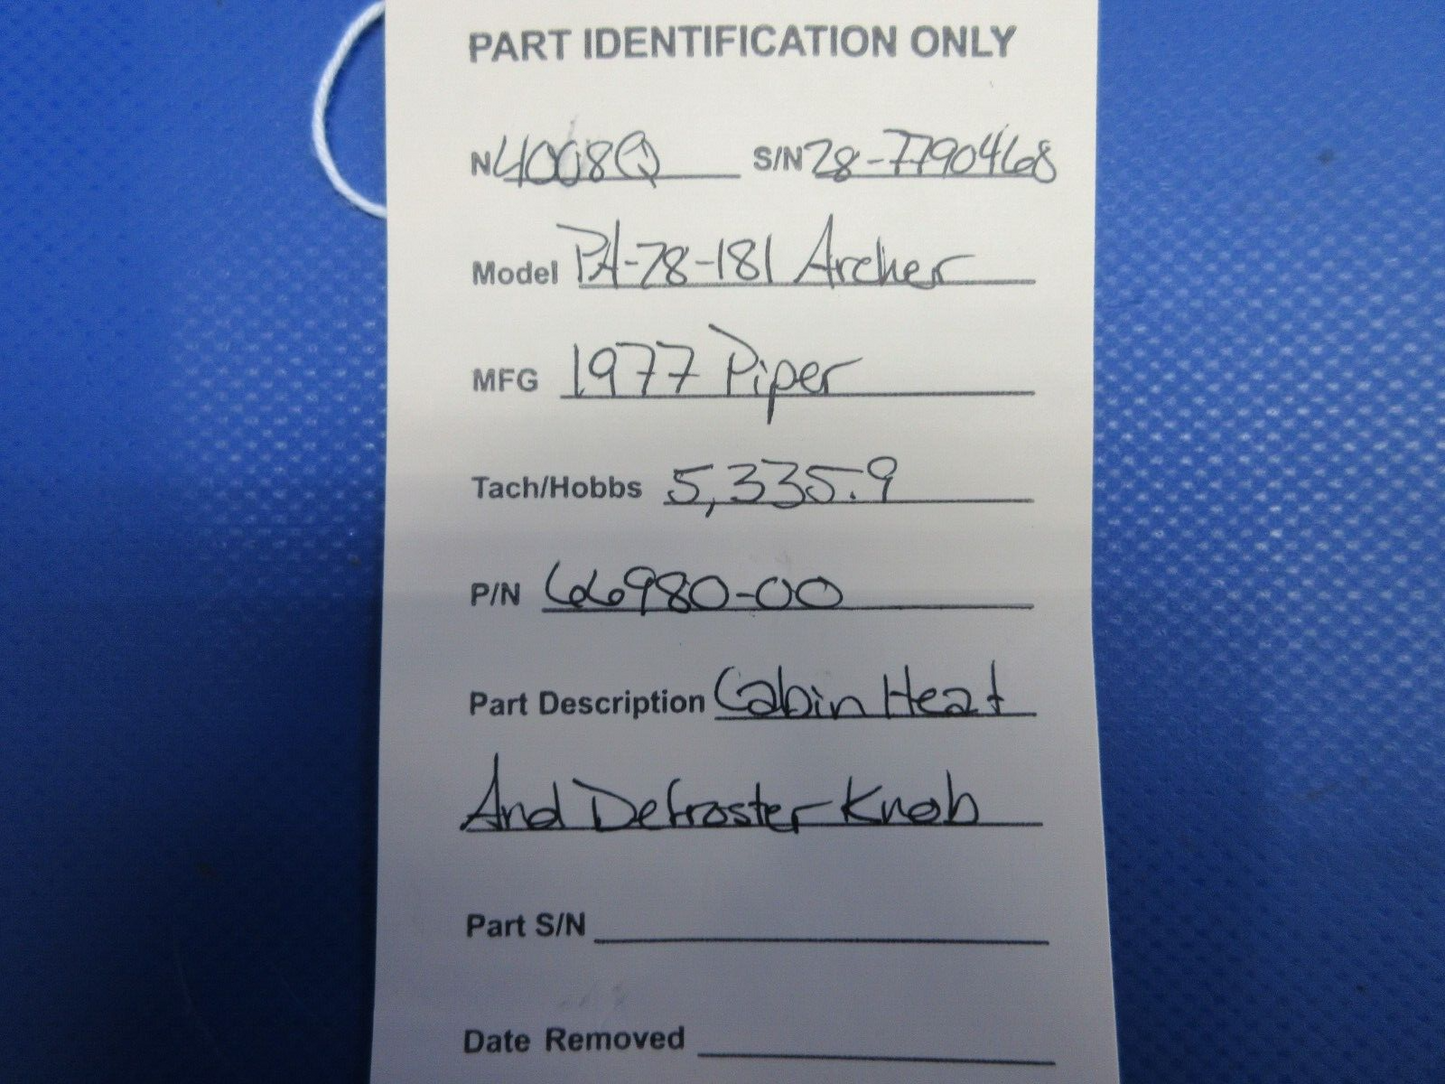 PART IDENTIFICATION ONLY
N 4008Q S/N 28-7790468
Model PA-28-181 Archer
MFG 1977 Piper
Tach/Hobbs 5,335.9
P/N 66980-00
Part Description Cabin Heat
And Defroster Knob
Part S/N
Date Removed